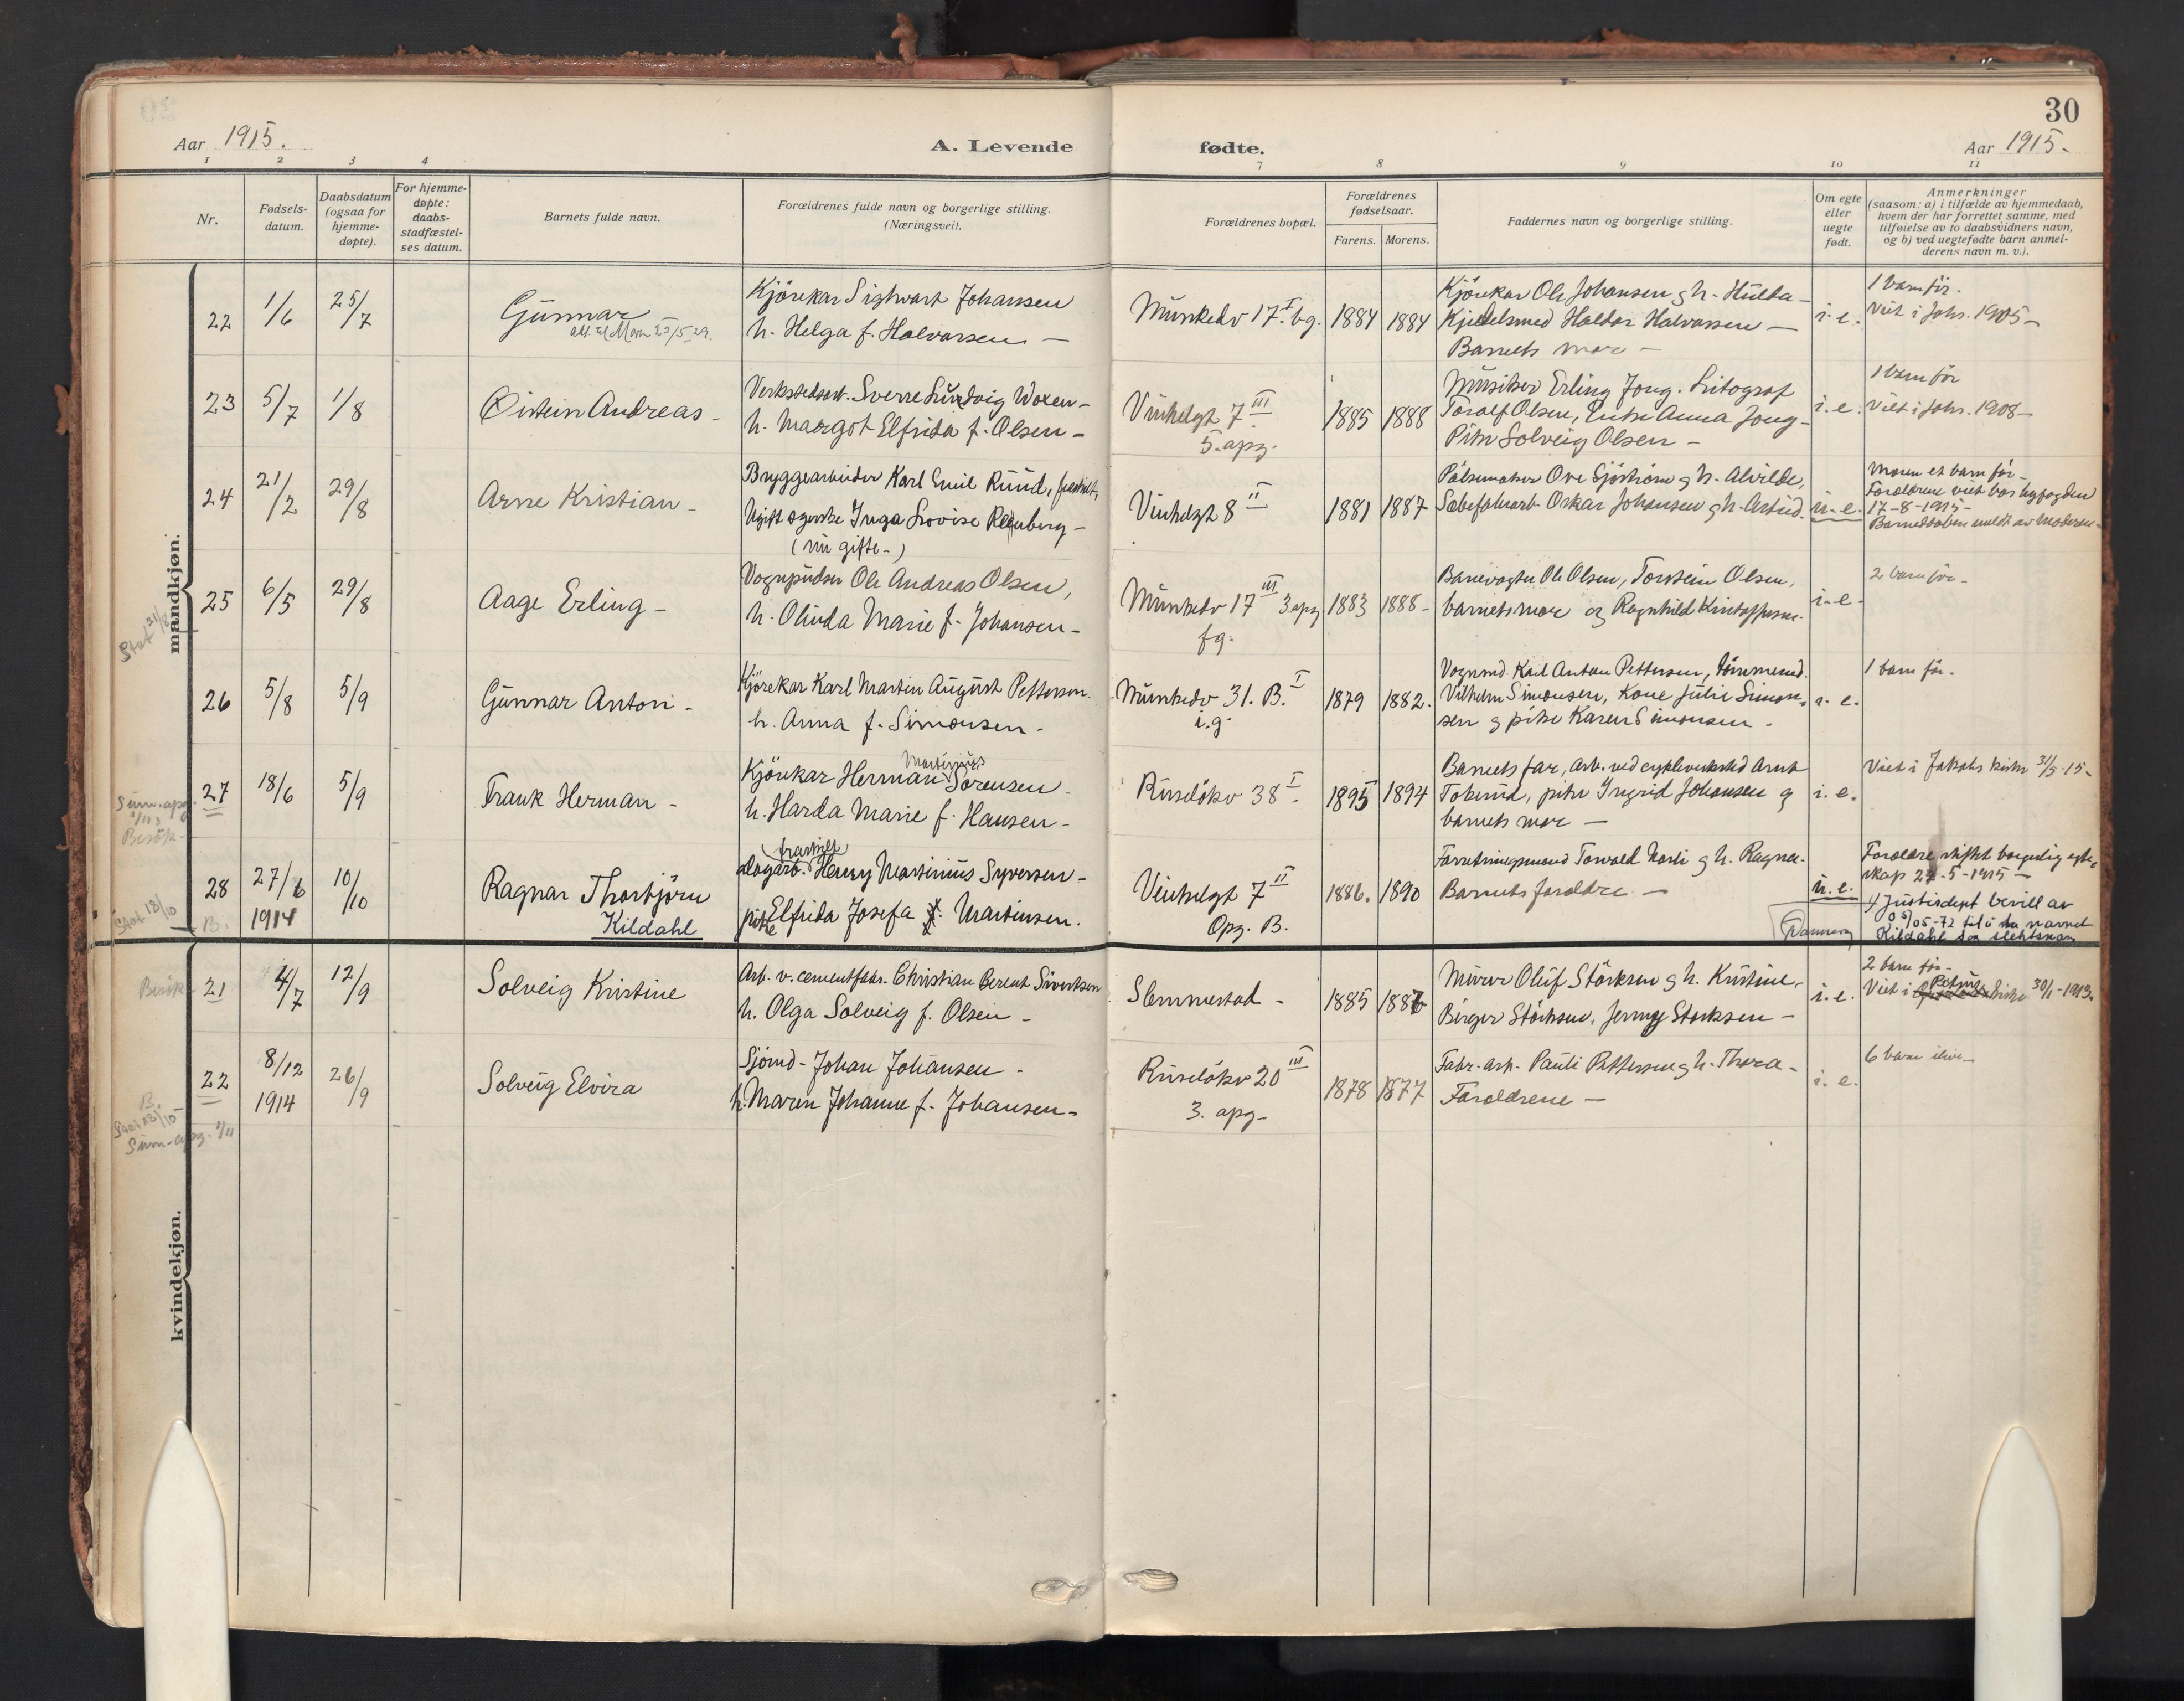 30
Aar 1915.
A. Levende
fødte.
Aar 1915.
1 2 3 4
7 8 9 10 11
Nr.
Fødsels-
datum.
Daabsdatum
(ogsaa for
hjemme-
døpte).
For hjemme-
døpte:
daabs-
stadfæstel-
ses datum.
Barnets fulde navn.
Forældrenes fulde navn og borgerlige stilling.
(Næringsvei).
Forældrenes bopæl.
Forældrenes
fødselsaar.
Farens. Morens.
Faddernes navn og borgerlige stilling.
Om egte
eller
uegte
født.
Anmerkninger
(saasom: a) i tilfælde av hjemmedaab,
hvem der har forrettet samme, med
tilføielse av to daabsvidners navn,
og b) ved uegtefødte barn anmel-
derens navn m. v.).
mandkjøn.
22 1/6 25/7
Gunnar
Kjörekar Sighwart Johansen
h. Helga f. Halvorsen —
Munkedv 17 I bg.
1884 1884
Kjörekar Ole Johansen g h. Hulda -
Kjedelsmed Haldor Halvorsen —
Barnets mor -
i. e.
1 barn för.
Viet i Johs. 1905 -
23 5/7 1/8
Öistein Andreas -
Verkstedsarb. Sverre Ludvig Woxen -
h. Margot Elfrida f. Olsen -
Vinkelgt 7 III
5. apg.
1885 1888
Musiker Erling Jong. Litograf
Toralf Olsen, Enke Anna Jong -
Pike Solveig Olsen -
i. e.
1 barn för
Viet i Johs. 1908 -
24 21/2 29/8
Arne Kristian -
Bryggearbeider Karl Emil Ruud, fraskilt,
Ugift syerske Inga Lovise Renberg -
(nu gifte -)
Vinkelgt 8 II
1881 1887
Pölsemaker Ove Sjöström g h. Alvilde,
Sæbefabrarb. Oskar Johansen g h. Astrid.
u. e.
Moren et barn för -
Forældrene viet hos byfogden
17-8-1915 -
Barnedaaben meldt av Moderen -
25 6/5 29/8
Aage Erling -
Vognpudser Ole Andreas Olsen,
h. Olinda Marie f. Johansen -
Munkedv 17 III 3 apg
fg.
1883 1888 -
Banevogter Ole Olsen, Torstein Olsen,
barnets mor og Ragnhild Kristoffersen.
i. e.
2 barn för -
26 5/8 5/9
Gunnar Anton -
Kjörekar Karl Martin August Pettersen.
h. Anna f. Simonsen -
Munkedv 31. B. I
i. g.
1879 1882.
Vognmd. Karl Anton Pettersen,
Vilhelm Simonsen, Kone Julie Simon-
sen g pike Karen Simonsen -
i. e.
1 barn för -
Sum. apg.
Besök -
27 18/6 5/9
Frank Herman -
Martinius
Kjörekar Herman Sörensen -
h. Harda Marie f. Hansen -
Ruselökv 38 I
1895 1894
Barnets far, arb. ved cykleverksted Arnt
Tokerud, pike Ingrid Johansen g
barnets mor —
i. e.
Viet i Jakobs kirke 31/3-15 -
Stat 13/10
B.
28 27/6 10/10
1914
Ragnar Thorbjörn
Kildahl
(fraskilt)
dagarb. Henry Martinius Syversen -
pike Elfrida Josefa f. Martinsen.
Vinkelgt 7 II
Opg. B.
1886. 1890
Forretningsmand Torvald Norli g h. Ragna -
Barnets foreldre —
u. e.
Foreldre stiftet borgerlig egte-
skap 27-5-1915 —
Justisdept bevill av
09/05-72 til å ta navnet
Kildahl som slektsnavn
kvindekjøn.
Besök
21 4/7 12/9
Solveig Kristine
Arb. v. cementfabr. Christian Berent Sivertsen
h. Olga Solveig f. Olsen -
Slemmestad -
1885 1887
Murer Oluf Störksen g h. Kristine,
Birger Störksen, Jenny Storksen -
i. e.
2 barn för -
Petrus
Viet i kirke 30/1-1913.
B.
Stat 13/10
Sum-apg. 1/11
22 8/12 26/9
1914
Solveig Elvira
Sjömd - Johan Johansen -
h. Maren Johanne f. Johansen -
Ruselökv 20 III
3. apg -
1878 1877
Fabr. arb. Pauli Pettersen g h. Thora -
Foreldrene —
i. e.
6 barn ilive -